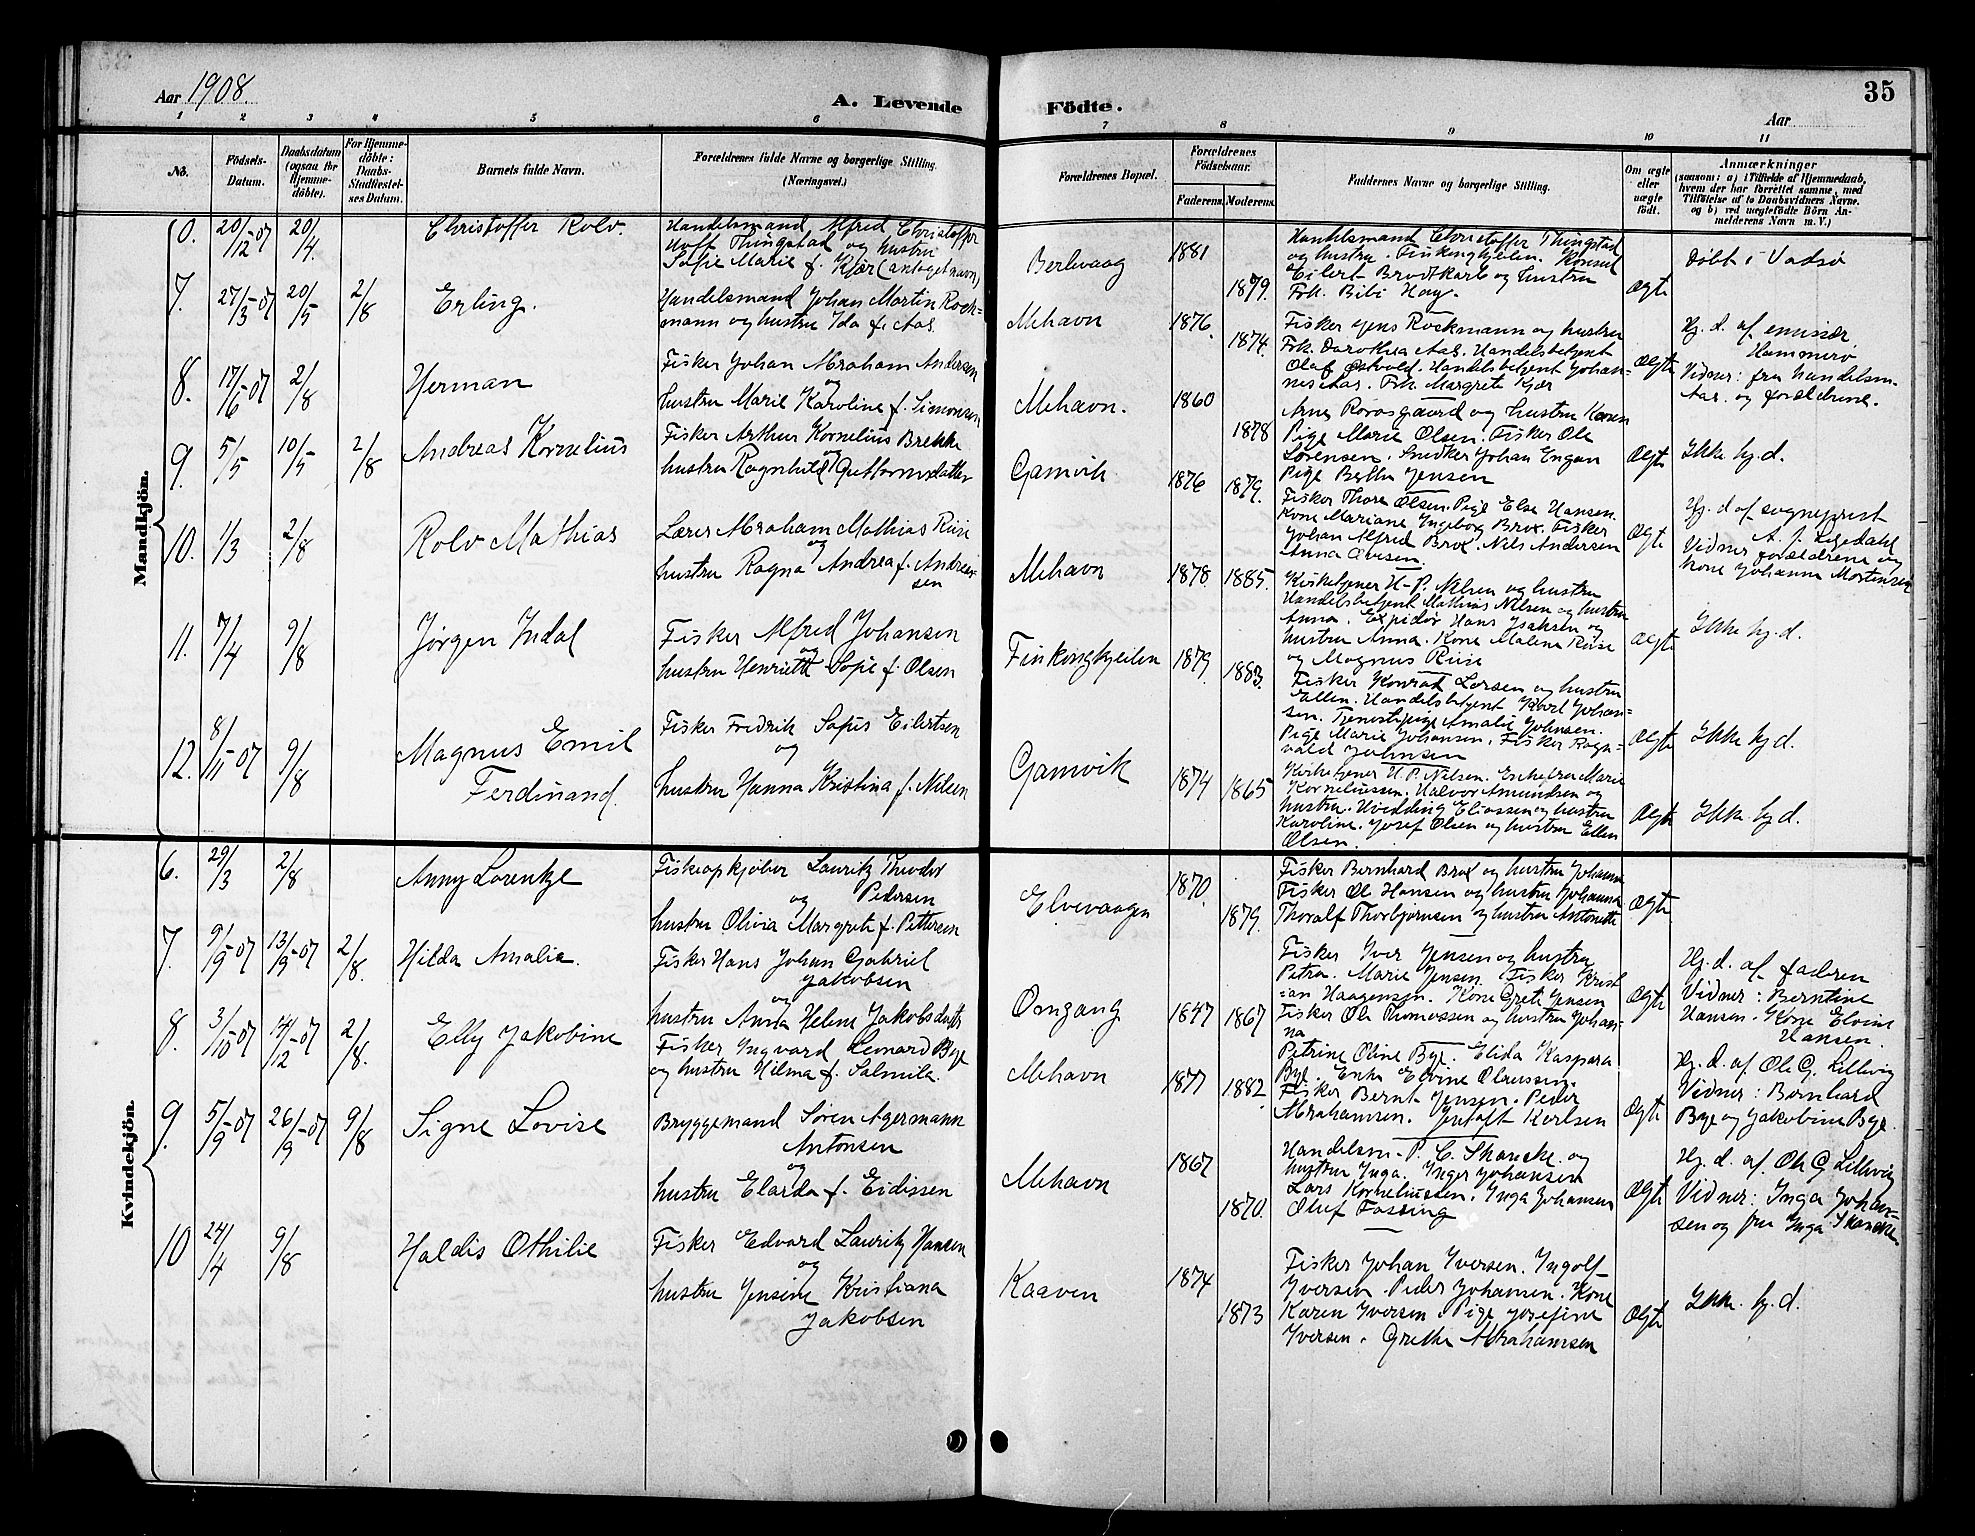 Aar 1908.
A. Levende Födte.
35
Aar
1 2 3 4 5 6 7 8 9 10 11
No.
Födsels-Datum.
Daabsdatum (ogsaa for Hjemmedöbte).
For Hjemmedöbte: Daabs-Stadfæstelses Datum.
Barnets fulde Navn.
Forældrenes fulde Navne og borgerlige Stilling. (Næringsvei.)
Forældrenes Bopæl.
Forældrenes Födselsaar.
Faderens. Moderens.
Faddernes Navne og borgerlige Stilling.
Om ægte eller uægte födt.
Anmærkninger
(saasom: a) i Tilfælde af Hjemmedaab, hvem der har forrettet samme, med Tilföielse af to Daabsvidners Navne. og b) ved uægtefödte Börn Anmelderens Navn m. V.)
Mandkjön.
20/12-07 20/4.
Christoffer Rolv.
Handelsmand Alfred Christoffer
Hoft Thingstad og hustru
Sofie Marie f. Kjær (antaget navn)
Berlevaag
1881
1879.
Handelsmand Christoffer Thingstad
og hustru. Finkongkjeilen. Konsul
Eilert Brodtkorb og hustru
Frk. Bibi Hay.
Ægte
Døbt i Vadsø
7. 27/3-07 20/5 2/8
Erling.
Handelsmand Johan Martin Rock=
mann og hustru Ida f. Aas.
Mehavn
1876.
1874.
Fisker Jens Rockmann og hustru
Frk. Dorothea Aas. Handelsbetjent
Olaf Østvold. Handelsbetjent Johan-
nes Aas. Frk. Margrete Kjær
Ægte
Hj. d. af emisær
Hammerø
Vidner: fru handelsm.
Aas. og forældrene.
8. 17/6-07 2/8
Herman
Fisker Johan Abraham Andersen
og
hustru Marie Karoline f. Simonsen
Mehavn.
1860
1878
Arne Rovosgaard og hustru Karen
Pige Marie Olsen. Fisker Ole
Sørensen. Snedker Johan Engan
Pige Bertha Jensen
Ægte
Ikke hj. d.
9. 5/5 10/5 2/8
Andreas Kornelius
Fisker Arthur Kornelius Brekke
og
hustru Ragnhild Guttormsdatter
Gamvik
1876 1879.
Fisker Thore Olsen. Pige Else Hansen.
Kone Mariane Ingeborg Brox. Fisker
Johan Alfred Brox. Nils Andersen
Ægte
Hj. d. af sogneprest
Vidner forældrene og
kone Johanna Mortensen
10. 1/3 2/8
Rolv Mathias
Lærer Abraham Mathias Riise
og
hustru Ragna Andrea f. Andrea-
sen
Mehavn
1878. 1885.
Kirketjener H. P. Nilsen og hustru
Handelsbetjent Mathias Nilsen og hustru
Anna. Expiditør Hans Isaksen og
hustru Anna. Kone Malene Riise
og Magnus Riise
Ægte
Ikke hj. d.
11. 7/4 9/8
Jørgen Indal
Fisker Alfred Johansen
og
hustru Henriette Sofie f. Olsen
Finkongkjeilen
1879.
1883.
Fisker Konrad Larsen og hustru
Ellen. Handelsbetjent Karl Johan=
sen. Tjenestepige Amalie Johnsen.
Pige Marie Johansen. Fisker Ragn-
vald Johnsen
Ægte
Ikke hj. d.
12. 8/11-07 9/8
Magnus Emil
Ferdinand.
Fisker Fredrik Sofus Eilertsen
og
hustru Hanna Kristina f. Nilsen
Gamvik
1874 1865
Kirketjener H. P. Nilsen. Enkefru Marie
Korneliussen. Halvor Amundsen og
hustru. Hvedding Eliassen og hustru
Karoline. Josef Olsen og hustru Ellen
Olsen.
Ægte
Ikke hj. d.
Kvindekjön.
6. 29/3 2/8
Anny Lorentze
Fiskeopkjøber Lauritz Theodor
Pedersen
og
hustru Olivia Margrete f. Pettersen
Elvevaagen
1870.
1879.
Fisker Bernhard Brox og hustru Johanna
Fisker Ole Hansen og hustru Johanna
Thoralf Thorbjørnsen og hustru Antonette
Ægte
7. 9/9-07 13/9-07 2/8
Hilda Amalie.
Fisker Hans Johan Gabriel
Jakobsen
og
hustru Anna Helene Jakobsdatter
Omgang
1847 1867
Fisker Iver Jensen og hustru
Petra. Marie Jensen. Fisker Krist
=ian Haagensen. Kone Grete Jensen
Fisker Ole Thomassen og hustru Johan-
na
Ægte
Hj. d. af faderen
Vidner: Berntine
Hansen. Kone Elvine
Hansen.
8. 3/10-07 14/12-07 2/8.
Elly Jakobine
Fisker Ingvard Leonard Bye
og hustru Hilma f. Salmila.
Mehavn
1877 1882
Petrine Oline Bye. Elida Kaspara
Bye. Enke Elvine Olaussen.
Fisker Bernt Jensen. Peder
Abrahamsen. Jentoft Karlsen
Ægte
Hj. d. af Ole G. Lillevig
Vidner: Bernhard
Bye og Jakobine Bye.
9. 5/9-07 26/9-07 9/8
Signe Lovise
Bryggemand Søren Agermann
Antonsen
og
hustru Elarda f. Eidissen
Mehavn
1867
1870.
Handelsm. P. C. Skancke og
hustru Inga. Inger Johansen
Lars Korneliussen. Inga Johansen
Oluf Fossing
Ægte
Hj. d. af Ole G. Lillevig
Vidner: Inga Johan-
sen og fru Inga Skancke.
10 24/4 9/8
Haldis Othilie
Fisker Edvard Lauritz Hansen
og
hustru Jensine Kristiana
Jakobsen
Kaaven
1874
1873
Fisker Johan Iversen. Ingolf
Iversen. Peder Johansen. Kone
Karen Iversen. Pige Josefine
Iversen. Grethe Abrahamsen
Ægte
Ikke. hj. d.